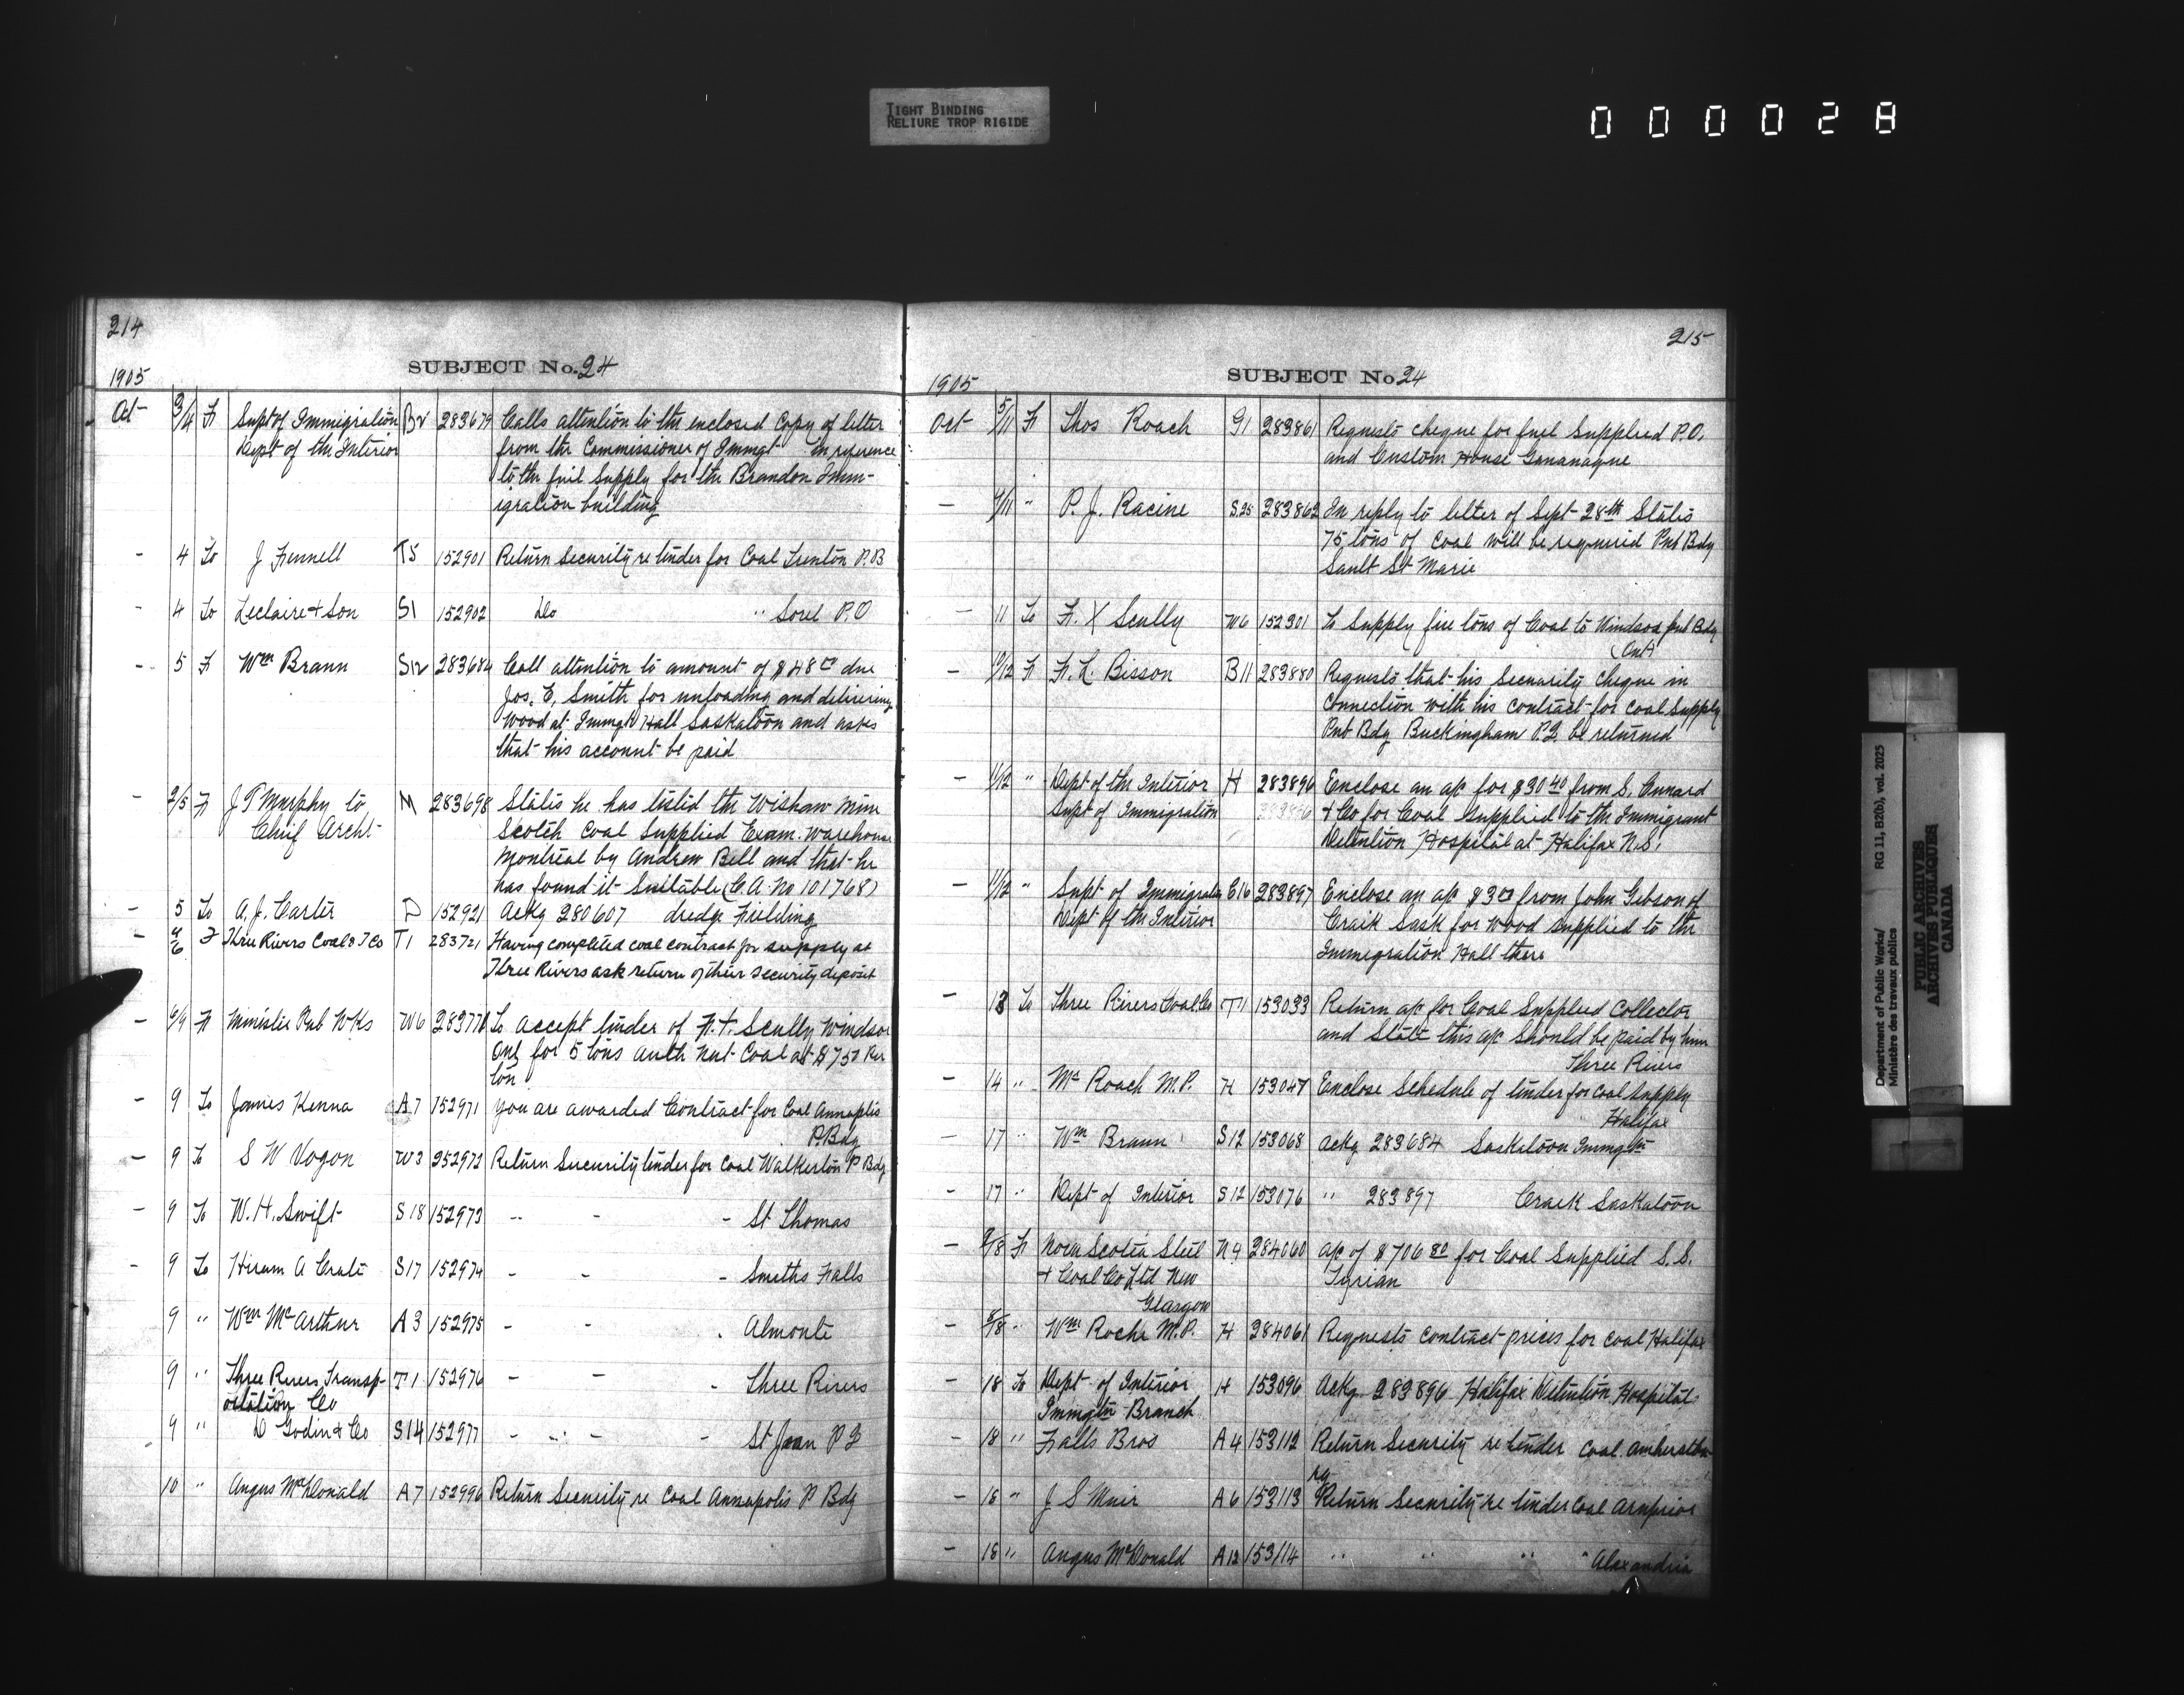 TIGHT BINDING
RELIURE TROP RIGIDE
000028
214
SUBJECT No. 24
1905
Oct - 3/4 Fr Supt of Immigration Br 283679 Calls attention to the enclosed Copy of letter
Dept of the Interior from the Commissioner of Immgt in reference
to the fuel supply for the Brandon Imm-
igration building
- 4 To J Fennell T5 152901 Return Security re tender for Coal Trenton P.B.
- 4 To Leclaire & Son S1 152902 Do " Sorel P.O
- 5 Fr Wm Braun S12 283684 Call attention to amount of $48 due
Jos. E. Smith for unloading and delivering
Wood at Immgn Hall Saskatoon and asks
that his account be paid
- 2/5 Fr J T Murphy to M 283698 States he has tested the Wishaw Mine
Chief Archt Scotch Coal Supplied Exam. Warehouse
Montreal by Andrew Bell and that he
has found it Suitable (C.A. No 101768)
- 5 To A. J. Carter D 152921 Ackg 280607 dredge Fielding
- 4/6 F Three Rivers Coal & T Co T1 283721 Having completed coal contract for supply at
Three Rivers ask return of their security deposit
- 6/9 Fr Minister Pub Wks W6 283771 To accept tender of F.X. Scully Windsor
Ont for 5 tons auth Nut Coal at $7.50 Per
ton
- 9 To James Kenna A7 152971 You are awarded Contract for Coal Annaplis
P. Bdg
- 9 To S W Vogan W3 252972 Return Security tender for Coal Walkerton P Bdg
- 9 To W. H. Swift S18 152973 " - - St Thomas
- 9 To Hiram A Crate S17 152974 - - - Smiths Falls
9 " Wm McArthur A3 152975 - - . Almonte
9 " Three Rivers Transp- T1 152976 - - - Three Rivers
ortation Co
9 " D Godin & Co S14 152977 - - - St Jean P Q
10 " Angus McDonald A7 152996 Return Security re Coal Annapolis P Bdg
215
SUBJECT No 24
1905
Oct 5/11 Fr Thos Roach G1 283861 Requests cheque for fuel Supplied P.O.
and Custom House Gananaque
- 9/11 " P. J. Racine S.25 283862 In reply to letter of Sept 28th States
75 tons of Coal will be required Pub Bdg
Sault St Marie
- 11 To F. X Scully W6 152301 To Supply five tons of Coal to Windsor pub Bdg
(Ont)
- 9/12 Fr F. L. Bisson B11 283880 Requests that his Security cheque in
connection with his contract for Coal Supply
Pub Bdg Buckingham P.Q. be returned
- 11/12 " Dept of the Interior H 283896 Enclose an a/c for $30.40 from S. Cunard
Supt of Immigration 283896 & Co for Coal Supplied to the Immigrant
Detention Hospital at Halifax N.S.
- 11/12 " Supt of Immigratn C16 283897 Enclose an a/c $3 from John Gibson of
Dept of the Interior Craik Sask for Wood Supplied to the
Immigration Hall there
- 13 To Three Rivers Coal Co T11 153033 Return a/c for Coal Supplied Collector
and State this a/c should be paid by him
Three Rivers
- 14 " Mr Roach M.P. H 153047 Enclose Schedule of tender for Coal Supply
Halifax
- 17 " Wm Braun S12 153068 Ackg 283684 Saskatoon Immgtn
- 17 " Dept of Interior S12 153076 " 283897 Craik Saskatoon
- 9/18 Fr Nova Scotia Steel N4 284060 a/c of $706.80 for Coal Supplied S.S.
& Coal Co Ltd New Tyrian
Glasgow
- 8/18 " Wm Roche M.P. H 284061 Requests Contract prices for Coal Halifax
- 18 To Dept of Interior H 153096 Ackg 283896 Halifax Detention Hospital
Immgtn Branch
- 18 " Falls Bros A4 153112 Return Security re tender Coal Amherstbu
rg
- 18 " J S Muir A6 153113 Return Security re tender Coal Arnprior
- 18 " Angus McDonald A12 153114 " " " " Alexandria
Department of Public Works/ RG 11, B2(b), vol. 2025
Ministère des travaux publics
PUBLIC ARCHIVES
ARCHIVES PUBLIQUES
CANADA